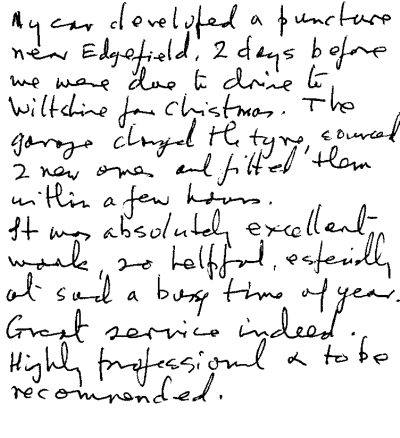 My car developed a puncture
near Edgefield, 2 days before
we were due to drive to
Wiltshire for Christmas. The
garage changed the tyre, sourced
2 new ones and fitted them
within a few hours.
It was absolutely excellent
work, so helpful, especially
at such a busy time of year.
Great service indeed.
Highly professional & to be
recommended.